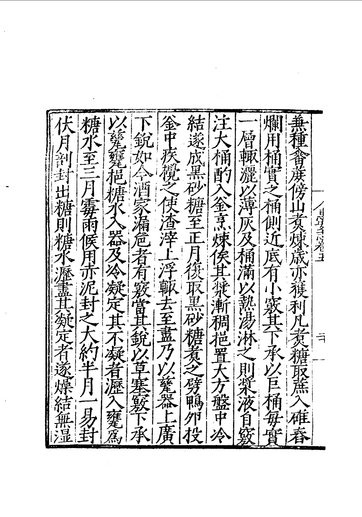 無種會蔗傍山煑煉歲亦獲利凡煑糖取蔗入碓舂
爛用桶實之桶側近底有小竅其下承以巨桶每實
一層輙灑以薄灰及桶滿以熱湯淋之則漿液自竅
注大桶酌入釡烹煉俟其漿漸稠挹置大方盤中冷
結遂成黑砂糖至正月復取黑砂糖煑之劈鴨夘投
釡中疾攪之使渣滓上浮輙去至盡乃以甕器上廣
下銳如今酒家漏巵者有竅當其銳以草塞竅下承
以甕甕挹糖水入器及冷凝定其不凝者瀝入甕爲
糖水至三月霉雨候用赤泥封之大約半月一易封
伏月剖封出糖則糖水瀝盡其凝定者逐燥結無濕